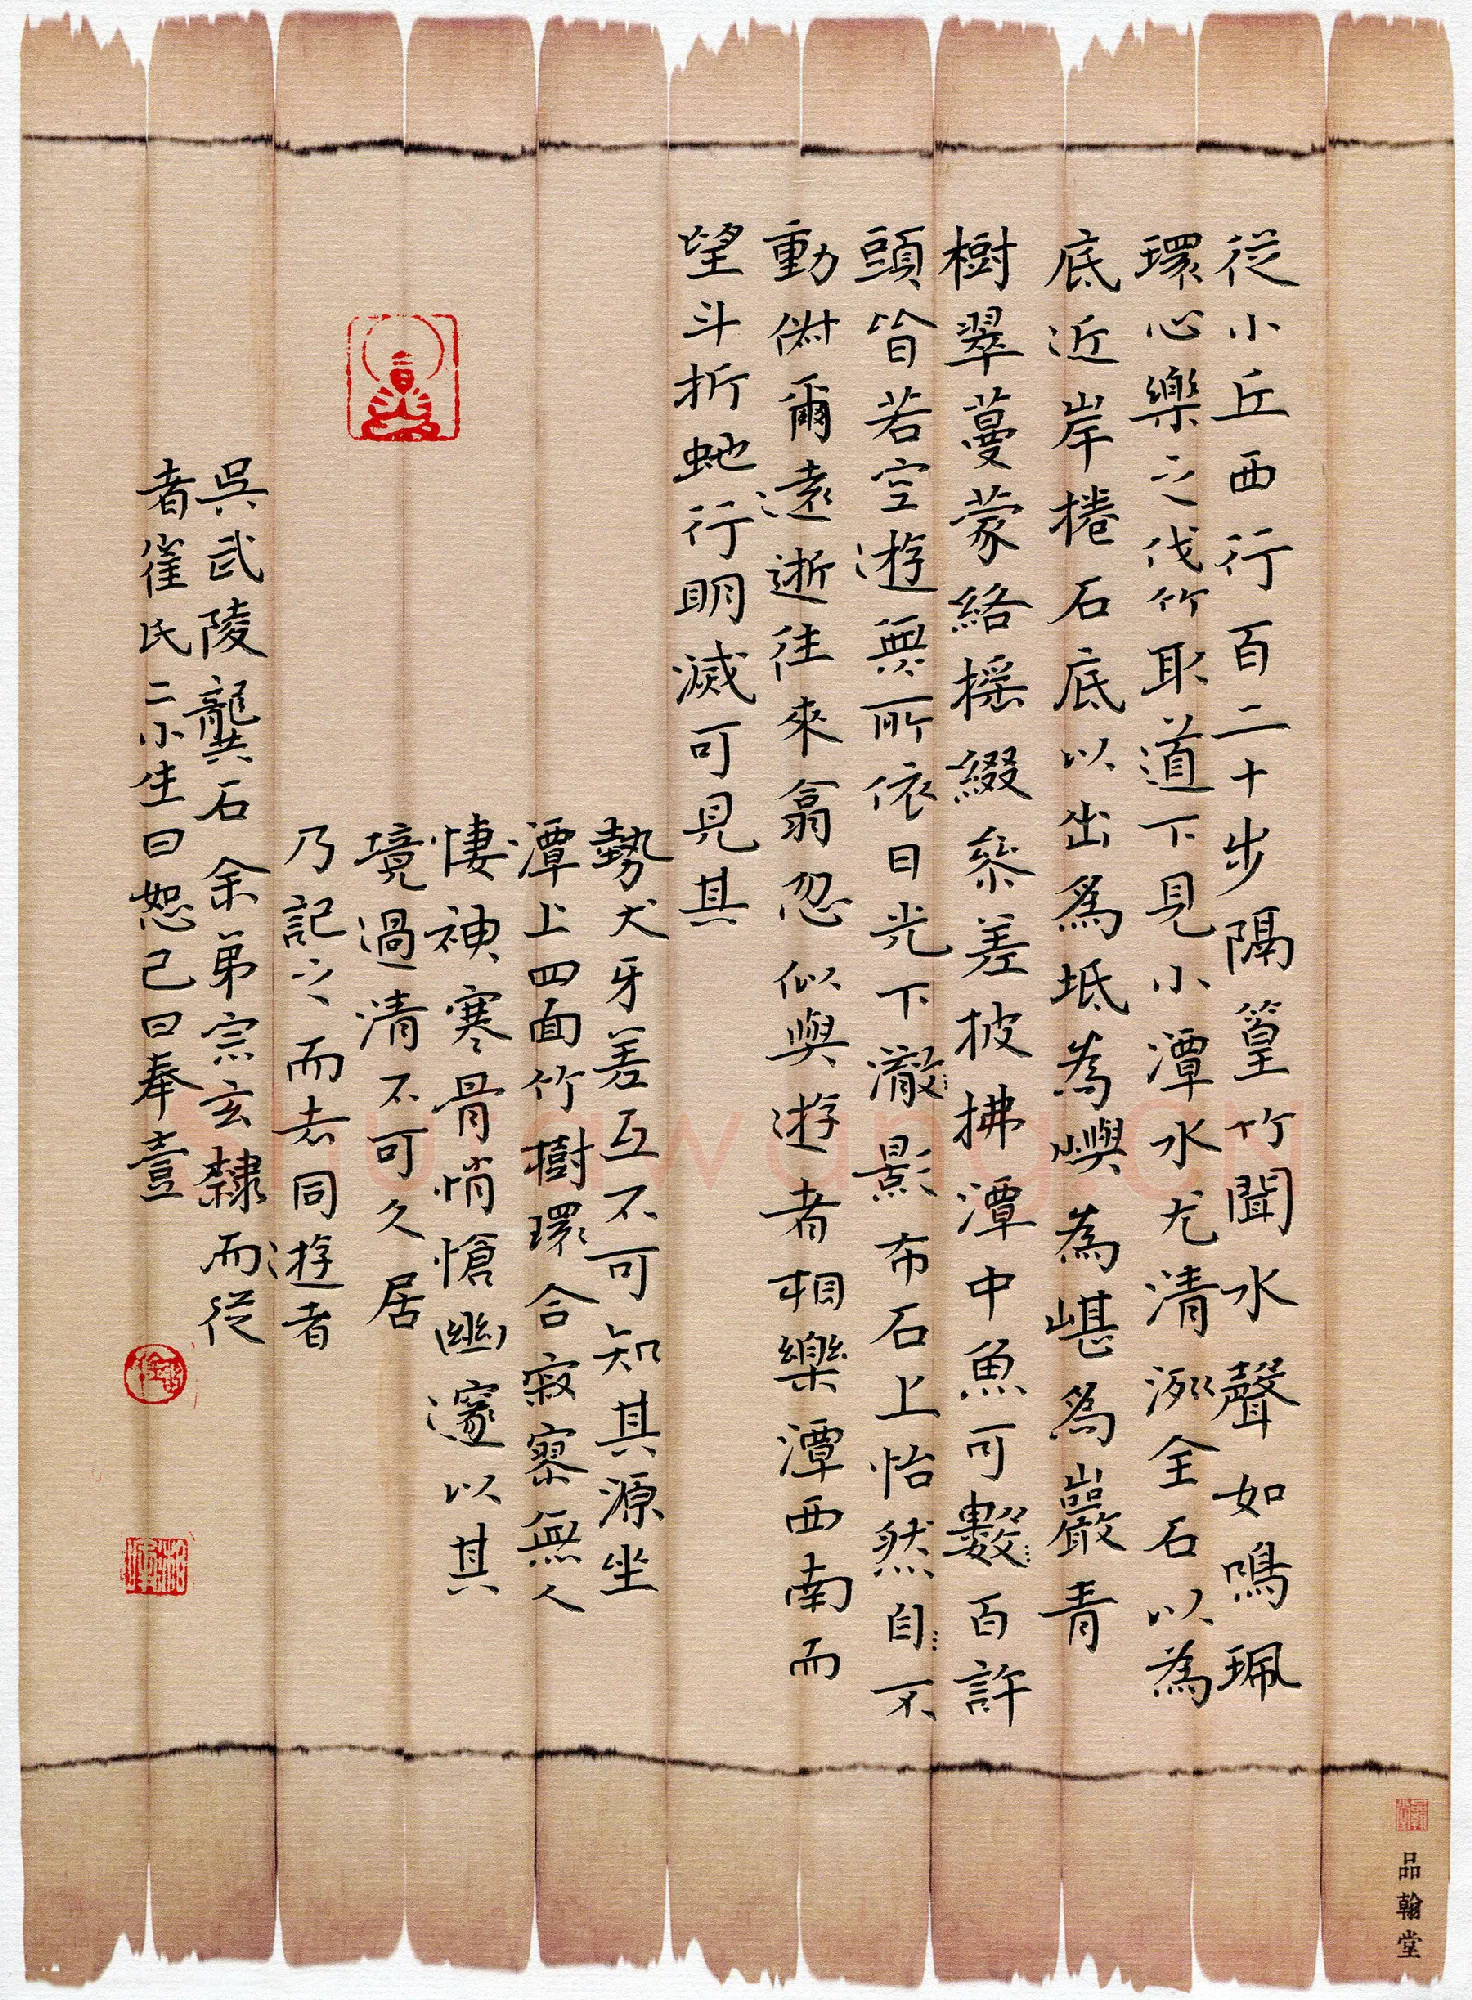 從小丘西行百二十步隔篁竹聞水聲如鳴珮
環心樂之伐竹取道下見小潭水尤清洌全石以為
底近岸捲石底以出為坻為嶼為嵁為巖青
樹翠蔓蒙絡搖綴參差披拂潭中魚可數百許
頭皆若空遊無所依日光下澈影布石上怡然自不
動俶爾遠逝往來翕忽似與遊者相樂潭西南而
望斗折蛇行明滅可見其
勢犬牙差互不可知其源坐
潭上四面竹樹環合寂寥無人
悽神寒骨悄愴幽邃以其
境過清不可久居
乃記之而去同遊者
吳武陵龔石余弟宗玄隸而從
者崔氏二小生曰恕己曰奉壹
品翰堂